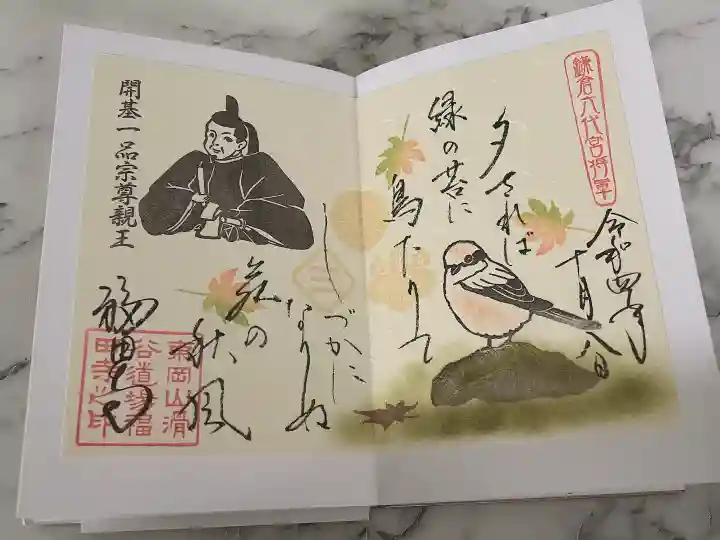 鎌倉六代宮将軍
令和四年
十月八日
夕されば
緑の苔に
鳥下りて
しづかに
なりぬ
苑の
秋風
開基一品宗尊親王
東岡山滑
谷道場福
田寺之印